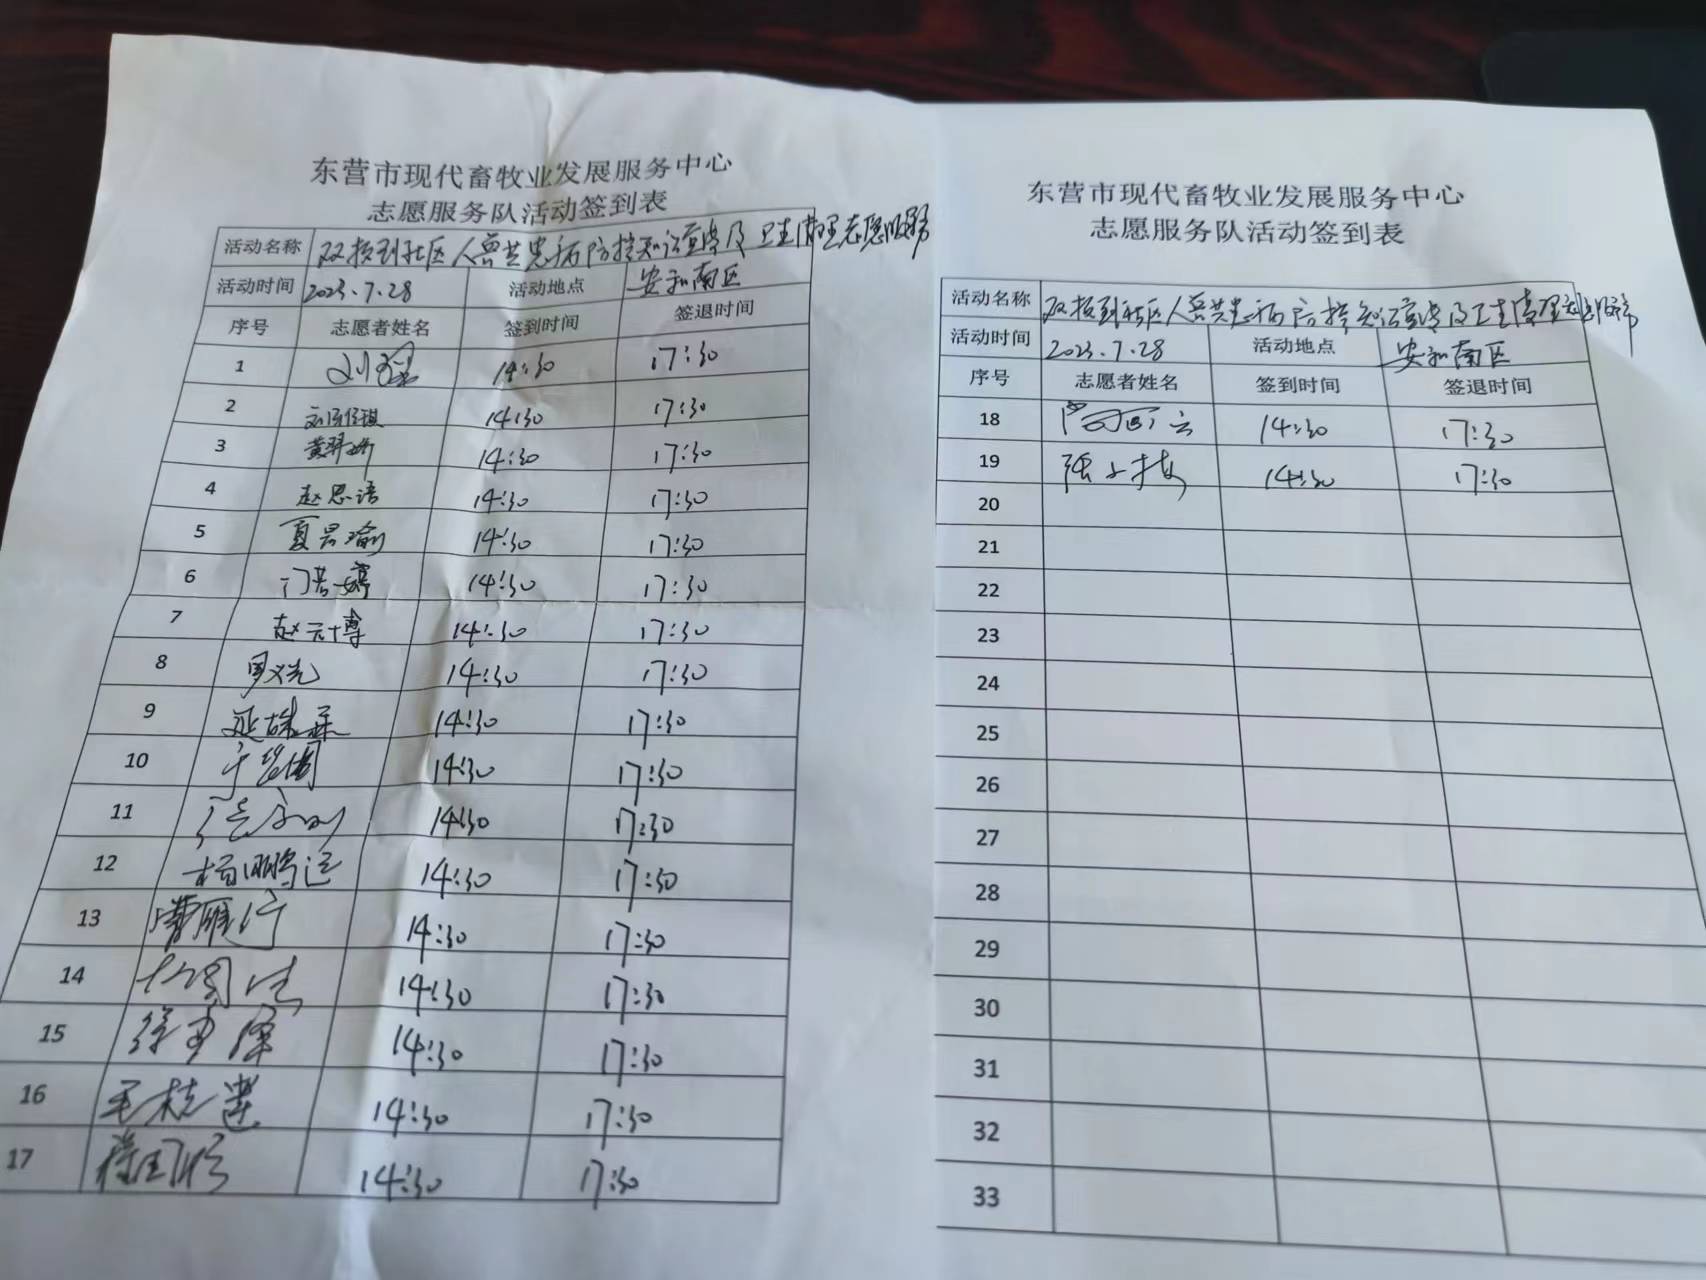 东营市现代畜牧业发展服务中心
志愿服务队活动签到表
活动名称 双报到社区人兽共患病防控知识宣传及卫生清理志愿服务
活动时间 2023.7.28 活动地点 安和南区
序号 志愿者姓名 签到时间 签退时间
1 14:30 17:30
2 14:30 17:30
3 14:30 17:30
4 赵思语 14:30 17:30
5 夏昙瑜 14:30 17:30
6 14:30 17:30
7 赵云博 14:30 17:30
8 14:30 17:30
9 14:30 17:30
10 14:30 17:30
11 14:30 17:30
12 杨鹏远 14:30 17:30
13 曹雁行 14:30 17:30
14 14:30 17:30
15 14:30 17:30
16 毛桂莲 14:30 17:30
17 14:30 17:30
东营市现代畜牧业发展服务中心
志愿服务队活动签到表
活动名称 双报到社区人兽共患病防控知识宣传及卫生清理志愿服务
活动时间 2023.7.28 活动地点 安和南区
序号 志愿者姓名 签到时间 签退时间
18 14:30 17:30
19 14:30 17:30
20
21
22
23
24
25
26
27
28
29
30
31
32
33